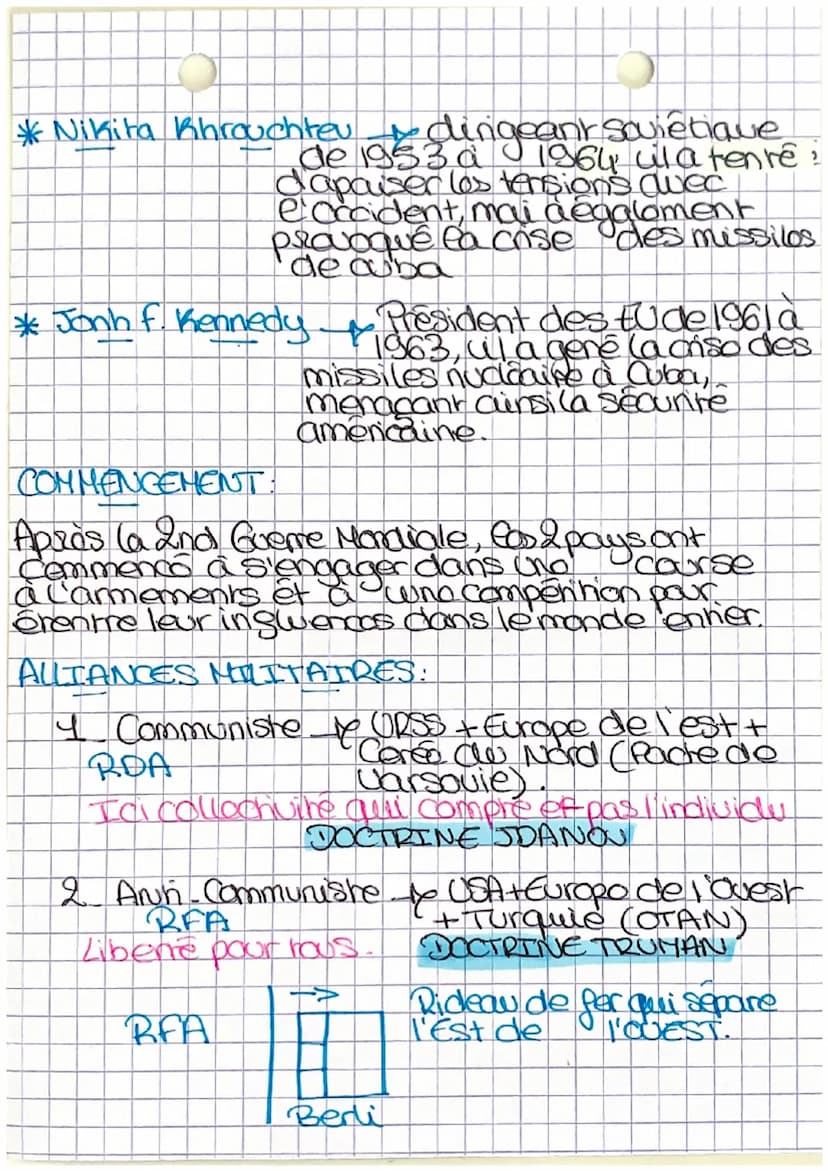 * Nikita Khrouchtev → dirigeant soviétique
de 1953 à 1964, il a tenté :
d'apaiser les tensions avec
l'occident, mai a également
provoqué la crise des missiles
de cuba
* Jonh f. Kennedy → Président des EU de 1961 à
1963, il a géré la crise des
missiles nucléaire à Cuba,
menaçant ainsi la sécurité
américaine.
COMMENCEMENT :
Après la 2nd Guerre Mondiale, les 2 pays ont
commencé à s'engager dans une course
à l'armements et à une compétition pour
étentre leur influences dans le monde entier.
ALLIANCES MILITAIRES :
1_ Communiste → URSS + Europe de l'est +
RDA Corée du Nord (Pacte de
Varsovie).
Ici collectivité qui compte et pas l'individu
DOCTRINE JDANOV
2_ Anti-Communiste → USA + Europe de l'ouest
RFA + Turquie (OTAN)
Liberté pour tous. DOCTRINE TRUMAN
→ Rideau de fer qui sépare
RFA l'Est de l'OUEST.
Berli